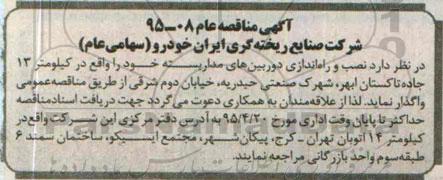 آگهی مناقصه عام ۰۸-۹۵
شرکت صنایع ریخته گری ایران خودرو (سهامی عام)
در نظر دارد نصب و راه‌اندازی دوربین‌های مداربسته خود را واقع در کیلومتر ۱۳
جاده تاکستان ابهر، شهرک صنعتی حیدریه، خیابان دوم شرقی از طریق مناقصه عمومی
واگذار نماید. لذا از علاقه‌مندان به همکاری دعوت می‌گردد جهت دریافت اسناد مناقصه
حداکثر تا پایان وقت اداری مورخ ۹۵/۴/۲۰ به آدرس دفتر مرکزی این شرکت واقع در
کیلومتر ۱۴ اتوبان تهران - کرج، پیکان شهر، مجتمع ایسیکو، ساختمان سمند ۶
طبقه سوم واحد بازرگانی مراجعه نمایند.